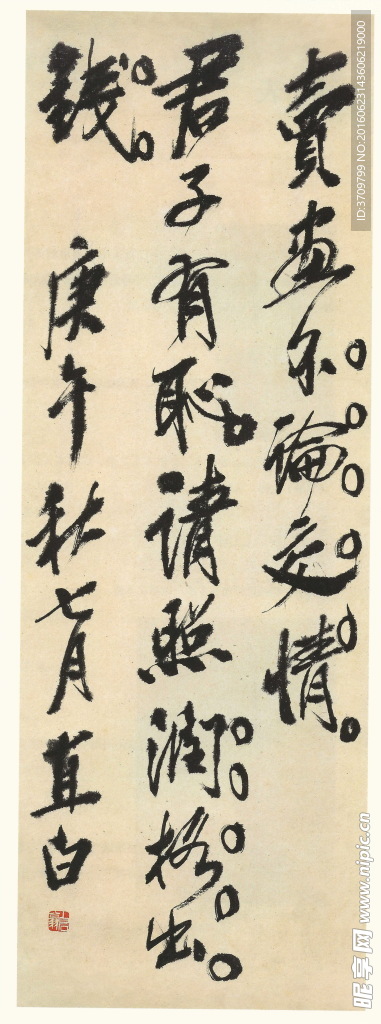 賣畫不論交情
君子有恥請照潤格出
錢 庚午秋七月直白
ID:3709799 NO:20160623143606219000
昵享网 www.nipic.cn